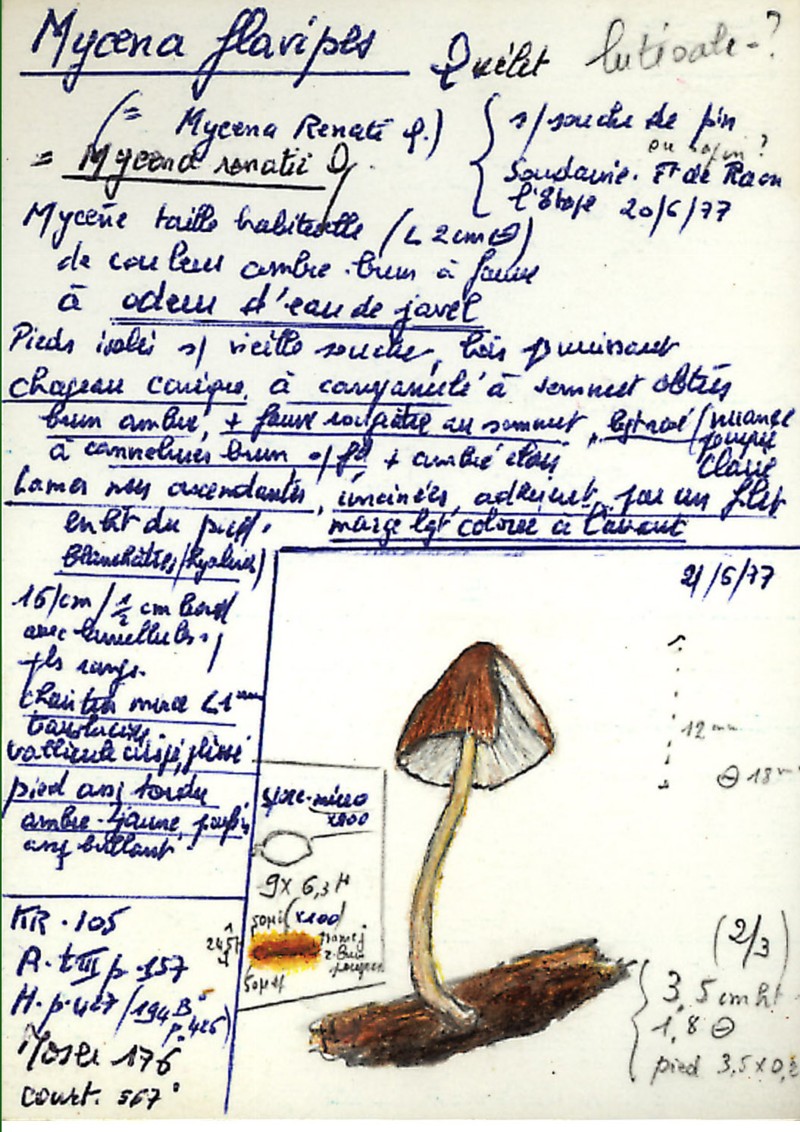 Mycena flavipes Quélet lutéoale-?
(= Mycena Renati Q.)
= Mycena renatii Q.
s/souche de pin
ou sapin?
Soudaine. Ft de Raon
l'Etape 20/6/77
Mycène taille habituelle (< 2cm ⊖)
de couleur ambre-brun à fauve
à odeur d'eau de javel
Pieds isolés s/ vieille souche, bois pourrissant
chapeau conique, à campanulé à sommet obtus
brun ambré, + fauve rougeâtre au sommet, lgt rosé (nuance
pourpre
claire
à cannelures brun s/ fd + ambré clair
Lames non ascendantes, uncinées, adhérent par un filet
en ht du pied,
marge lgt colorée à l'avant
blanchâtres/hyalines)
16/cm/½ cm bord
avec lamellules,
pls rangs.
chair très mince <1mm
translucide.
pied ass tordu
ambre-jaune,
ass brillant
21/6/77
12 mm
⊖ 18 m
spore-micro
x800
9 x 6,3 µ
50µ (x100)
245
50µ
(2/3)
3,5 cm ht
1,8 ⊖
pied 3,5 x 0,2
KR . 105
R. t III p. 157
H. p. 427 (194 B°
p. 426)
Moser 176
Court. 567°